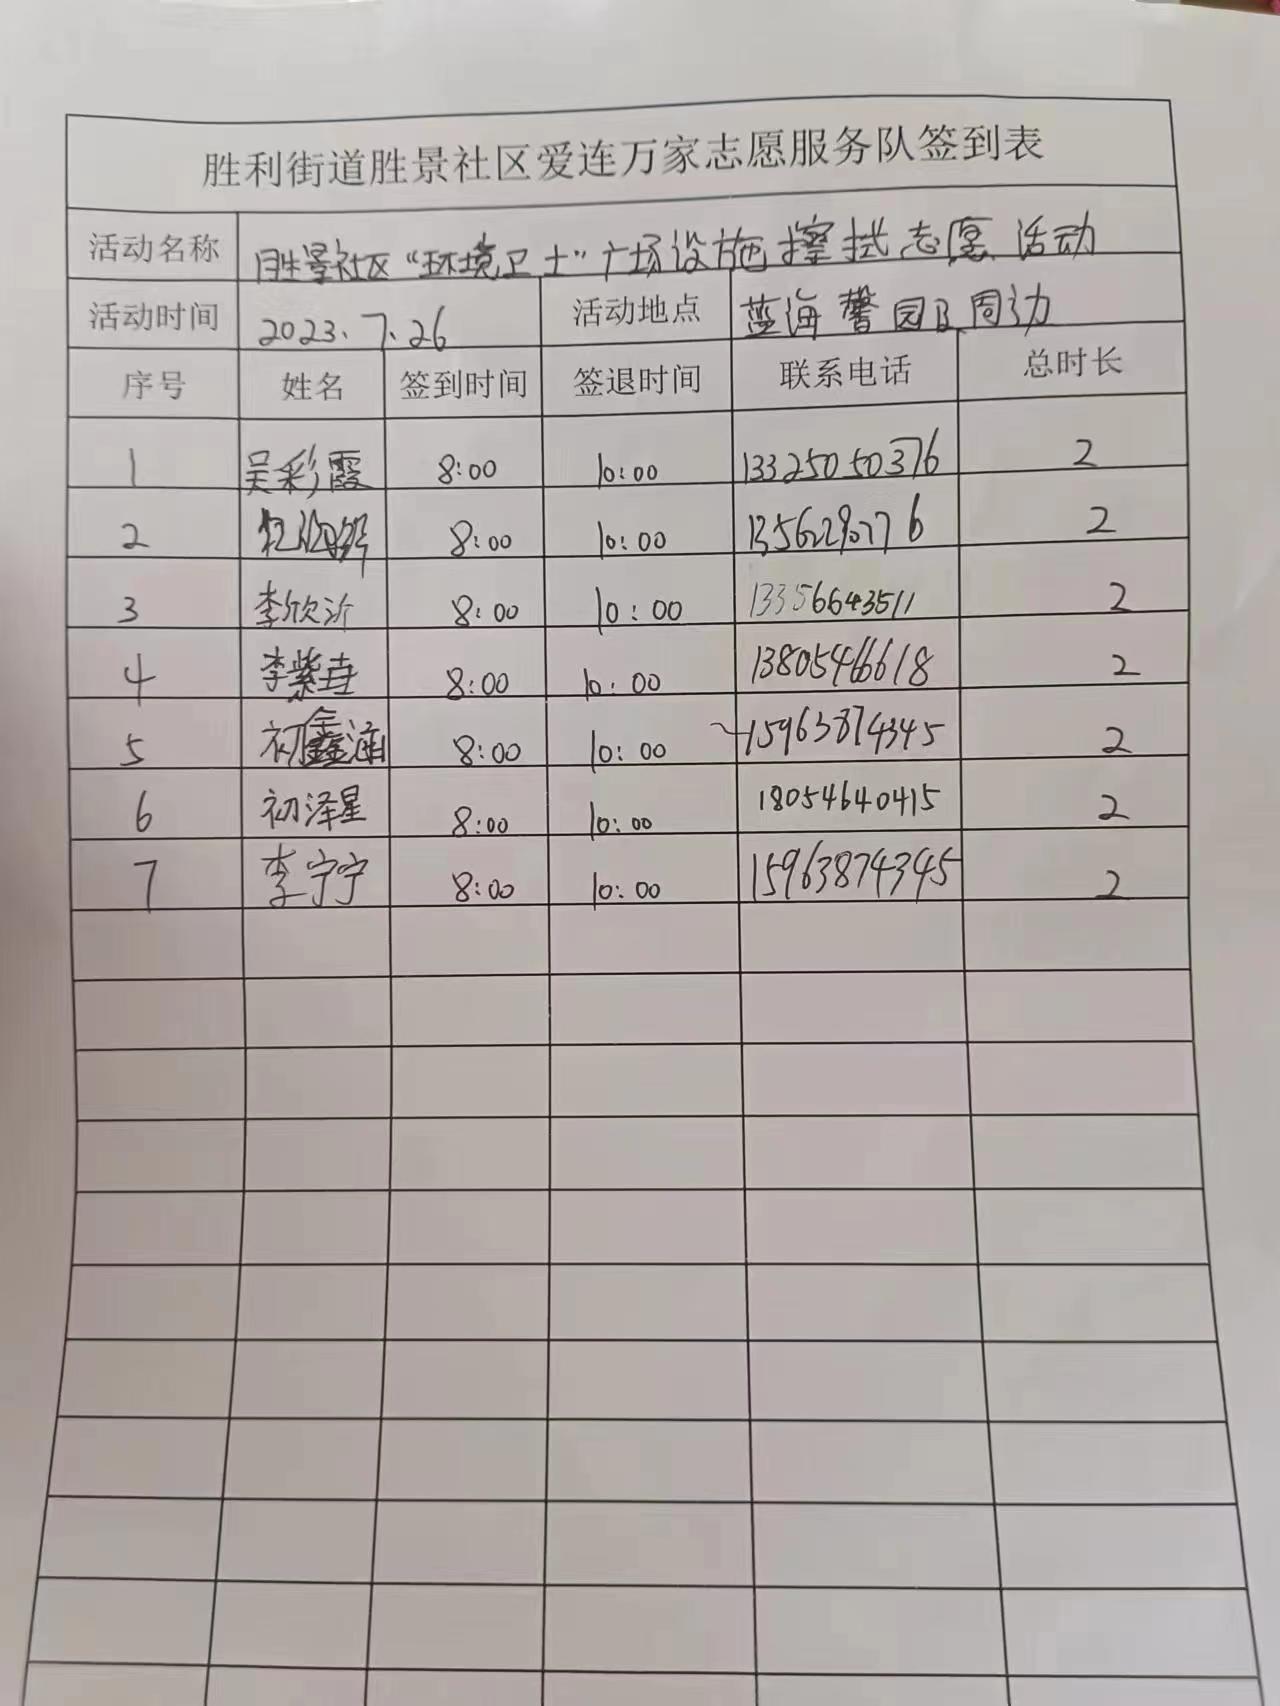 胜利街道胜景社区爱连万家志愿服务队签到表
活动名称 胜景社区“环境卫士”广场设施擦拭志愿活动
活动时间 2023.7.26 活动地点 蓝海馨园及周边
序号 姓名 签到时间 签退时间 联系电话 总时长
1 吴彩霞 8:00 10:00 13325050376 2
2 8:00 10:00 2
3 李欣沂 8:00 10:00 13356643511 2
4 李紫垚 8:00 10:00 13805466618 2
5 初鑫涵 8:00 10:00 15963874345 2
6 初泽星 8:00 10:00 18054640415 2
7 李宁宁 8:00 10:00 15963874345 2